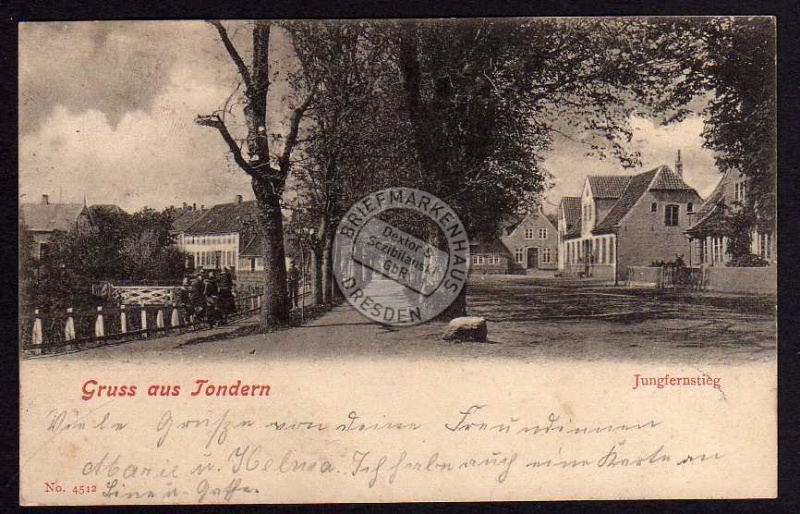 BRIEFMARKENHAUS
Dextor &
Sczibilanski
GbR
DRESDEN
Gruss aus Tondern
Jungfernstieg
Viele Grüße von deine Freundinnen
Marie u. Helma. Ich habe auch eine Karte an
No. 4512
Line u.